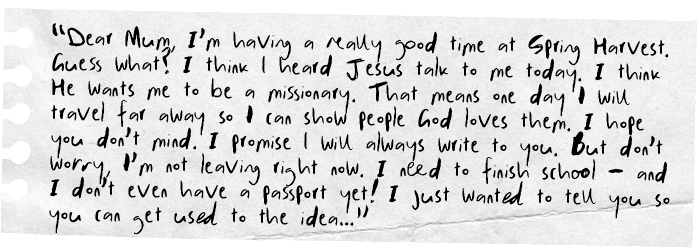 "Dear Mum, I'm having a really good time at Spring Harvest.
Guess what? I think I heard Jesus talk to me today. I think
He wants me to be a missionary. That means one day I will
travel far away so I can show people God loves them. I hope
you don't mind. I promise I will always write to you. But don't
worry, I'm not leaving right now. I need to finish school - and
I don't even have a passport yet! I just wanted to tell you so
you can get used to the idea..."